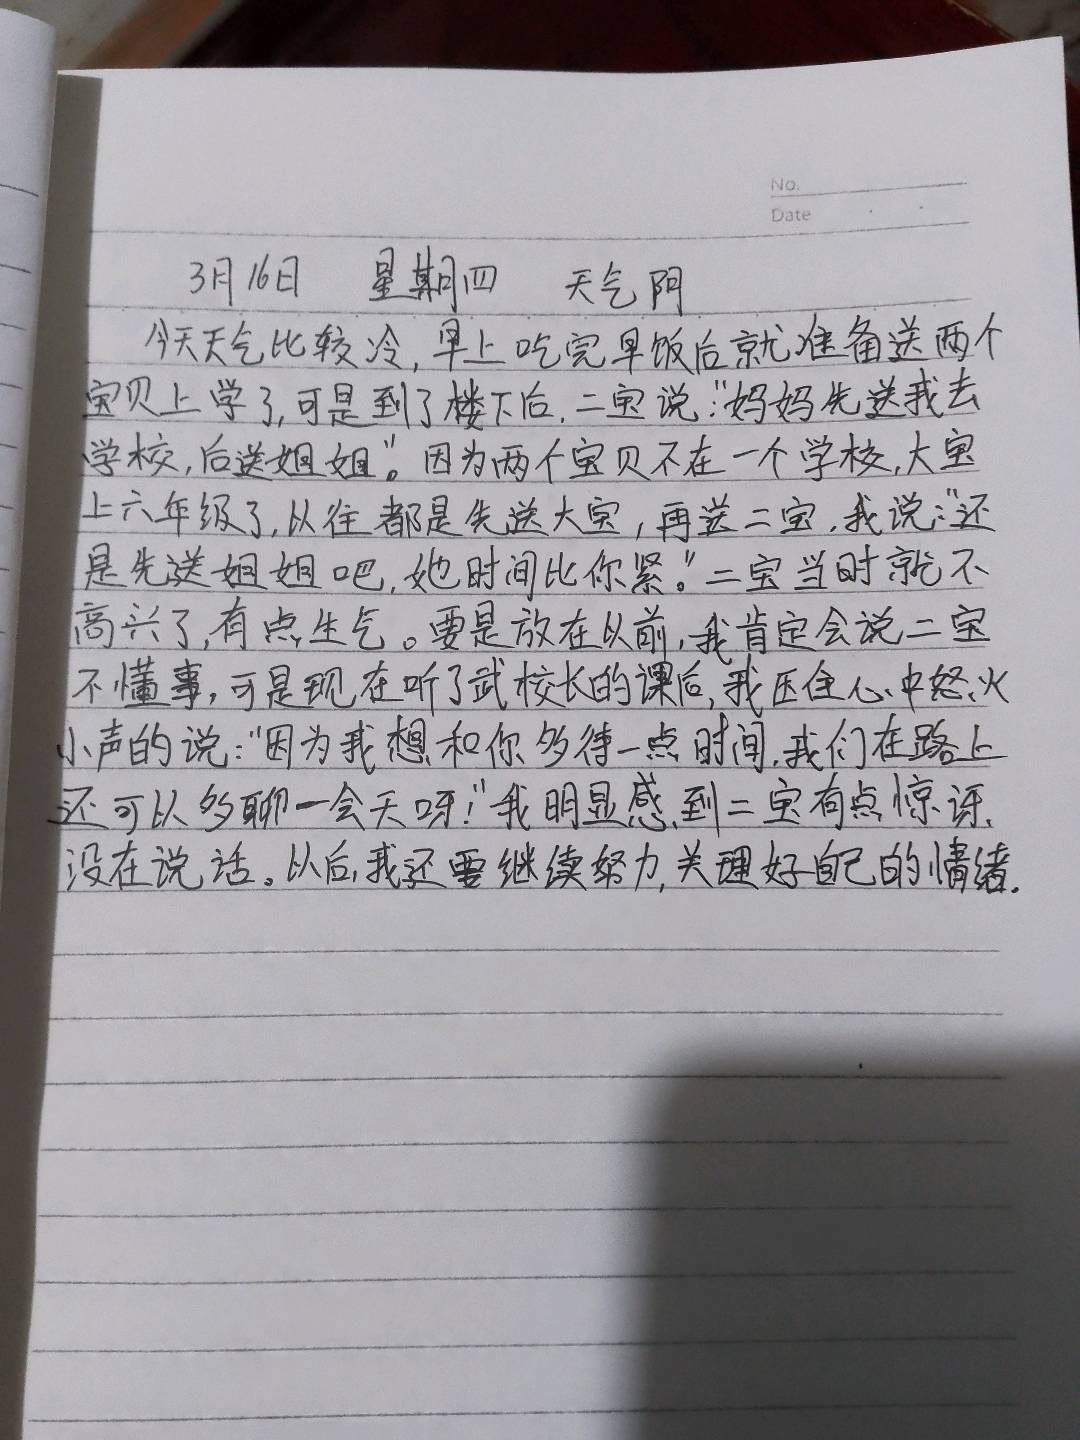 No.
Date
3月16日 星期四 天气阴
今天天气比较冷,早上吃完早饭后就准备送两个
宝贝上学了,可是到了楼下后,二宝说:"妈妈先送我去
学校,后送姐姐"。因为两个宝贝不在一个学校,大宝
上六年级了,以往都是先送大宝,再送二宝,我说:"还
是先送姐姐吧,她时间比你紧。"二宝当时就不
高兴了,有点生气。要是放在以前,我肯定会说二宝
不懂事,可是现在听了武校长的课后,我压住心中怒火
小声的说:"因为我想和你多待一点时间,我们在路上
还可以多聊一会天呀!"我明显感到二宝有点惊讶,
没在说话。以后,我还要继续努力,关理好自己的情绪.